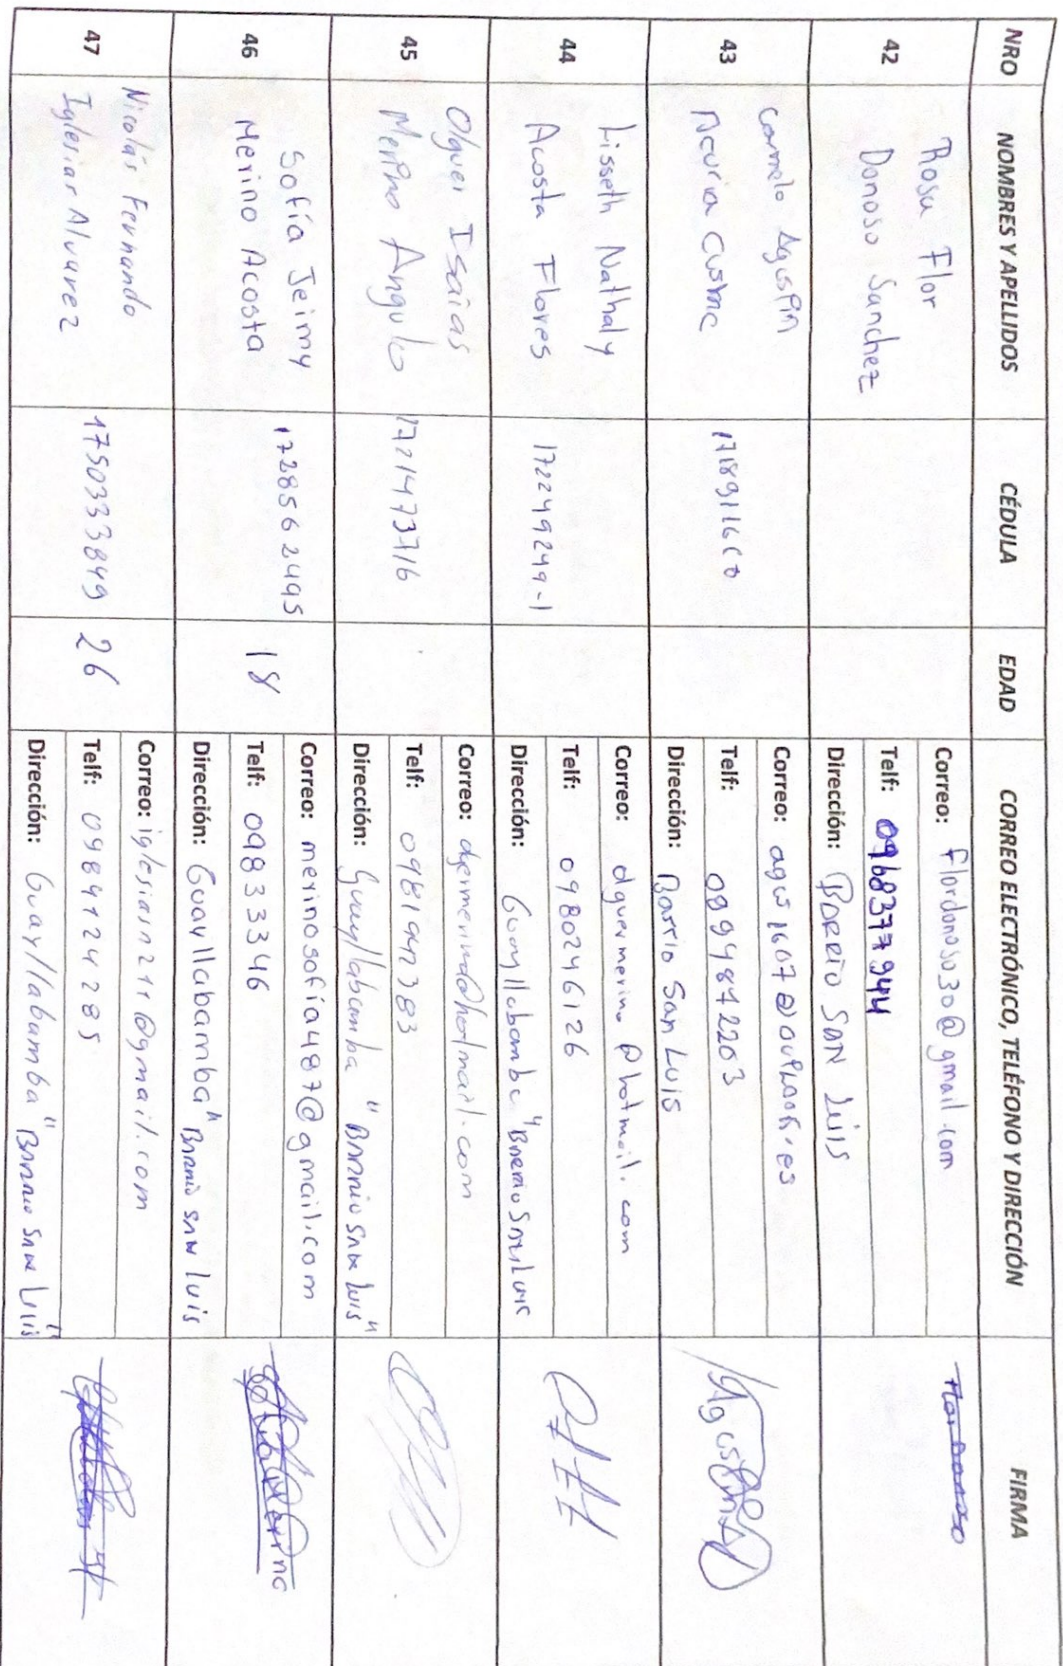 NRO NOMBRES Y APELLIDOS CÉDULA EDAD CORREO ELECTRÓNICO, TELÉFONO Y DIRECCIÓN FIRMA
42
Rosa Flor
Donoso Sanchez
Correo: flordonoso30@gmail.com
Telf: 0968377944
Dirección: Barrio San Luis
Flor Donoso
43
Carmelo Agustin
Correo:
Telf: 0994872203
Dirección: Barrio San Luis
44
Lisseth Nathaly
Acosta Flores
172249249-1
Correo: olguermerino@hotmail.com
Telf: 0980246126
Dirección: Guayllabamba "Barrio San Luis
45
Olguer Isaias
Merino Angulo
1721473716
Correo:
Telf:
Dirección: Guayllabamba "Barrio San Luis"
46
Sofía Jeimy
Merino Acosta
1728562495
18
Correo: merinosofia487@gmail.com
Telf: 098333346
Dirección: Guayllabamba "Barrio San Luis
47
Nicolás Fernando
Iglesias Alvarez
1750333849
26
Correo: iglesiasn211@gmail.com
Telf: 0984124285
Dirección: Guayllabamba "Barrio San Luis"